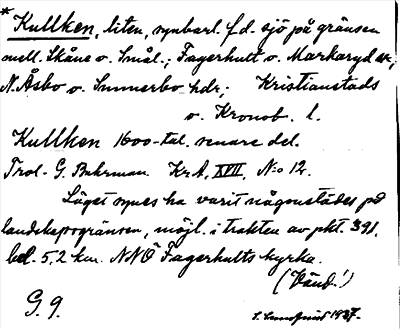 * Kullken, liten, synbarl. f.d. sjö på gränsen
mell. Skåne o. Smål.; Fagerhult o. Markaryd sr,
N. Åsbo o. Sunnerbo hdr; Kristianstads
o. Kronob. l.
Kullken 1600-tal. senare del.
Trol. G. Buhrman KrA, XVII, N:o 12.
Läget synes ha varit någonstädes på
landskapsgränsen, möjl. i trakten av pkt. 391.
bel. 5,2 km. NNÖ Fagerhults kyrka.
(Vänd!)
G. 9.
1937.